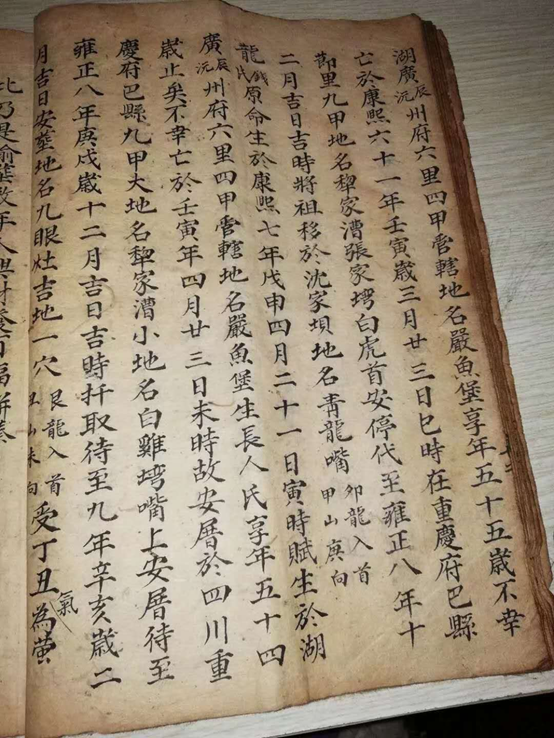 湖廣辰沅州府六里四甲管轄地名嚴魚堡享年五十五歲不幸
亡於康熙六十一年壬寅歲三月廿三日巳時在重慶府巴縣
節里九甲地名犂家漕張家塆白虎首安停代至雍正八年十
二月吉日吉時將祖移於沈家垻地名青龍嘴卯龍入首甲山庚向
龍氏原命生於康熙七年戊申四月二十一日寅時賦生於湖
廣辰沅州府六里四甲管轄地名嚴魚堡生長人氏享年五十四
歲止矣不幸亡於壬寅年四月廿三日未時故安厝於四川重
慶府巴縣九甲大地名犂家漕小地名白雞塆嘴上安厝待至
雍正八年庚戌歲十二月吉日吉時扦取待至九年辛亥歲二
月吉日安塟地名九眼灶吉地一穴艮龍入首山未向受丁丑氣為螢